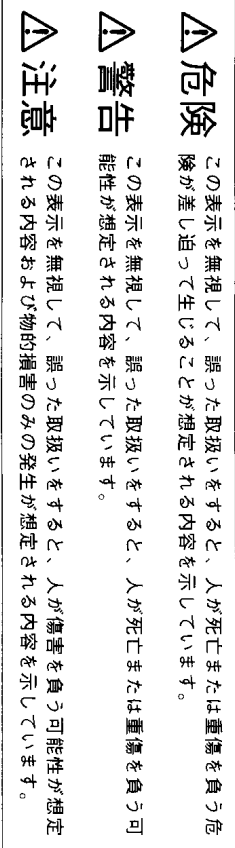 ⚠危険
この表示を無視して、誤った取扱いをすると、人が死亡または重傷を負う危
険が差し迫って生じることが想定される内容を示しています。
⚠警告
この表示を無視して、誤った取扱いをすると、人が死亡または重傷を負う可
能性が想定される内容を示しています。
⚠注意
この表示を無視して、誤った取扱いをすると、人が傷害を負う可能性が想定
される内容および物的損害のみの発生が想定される内容を示しています。